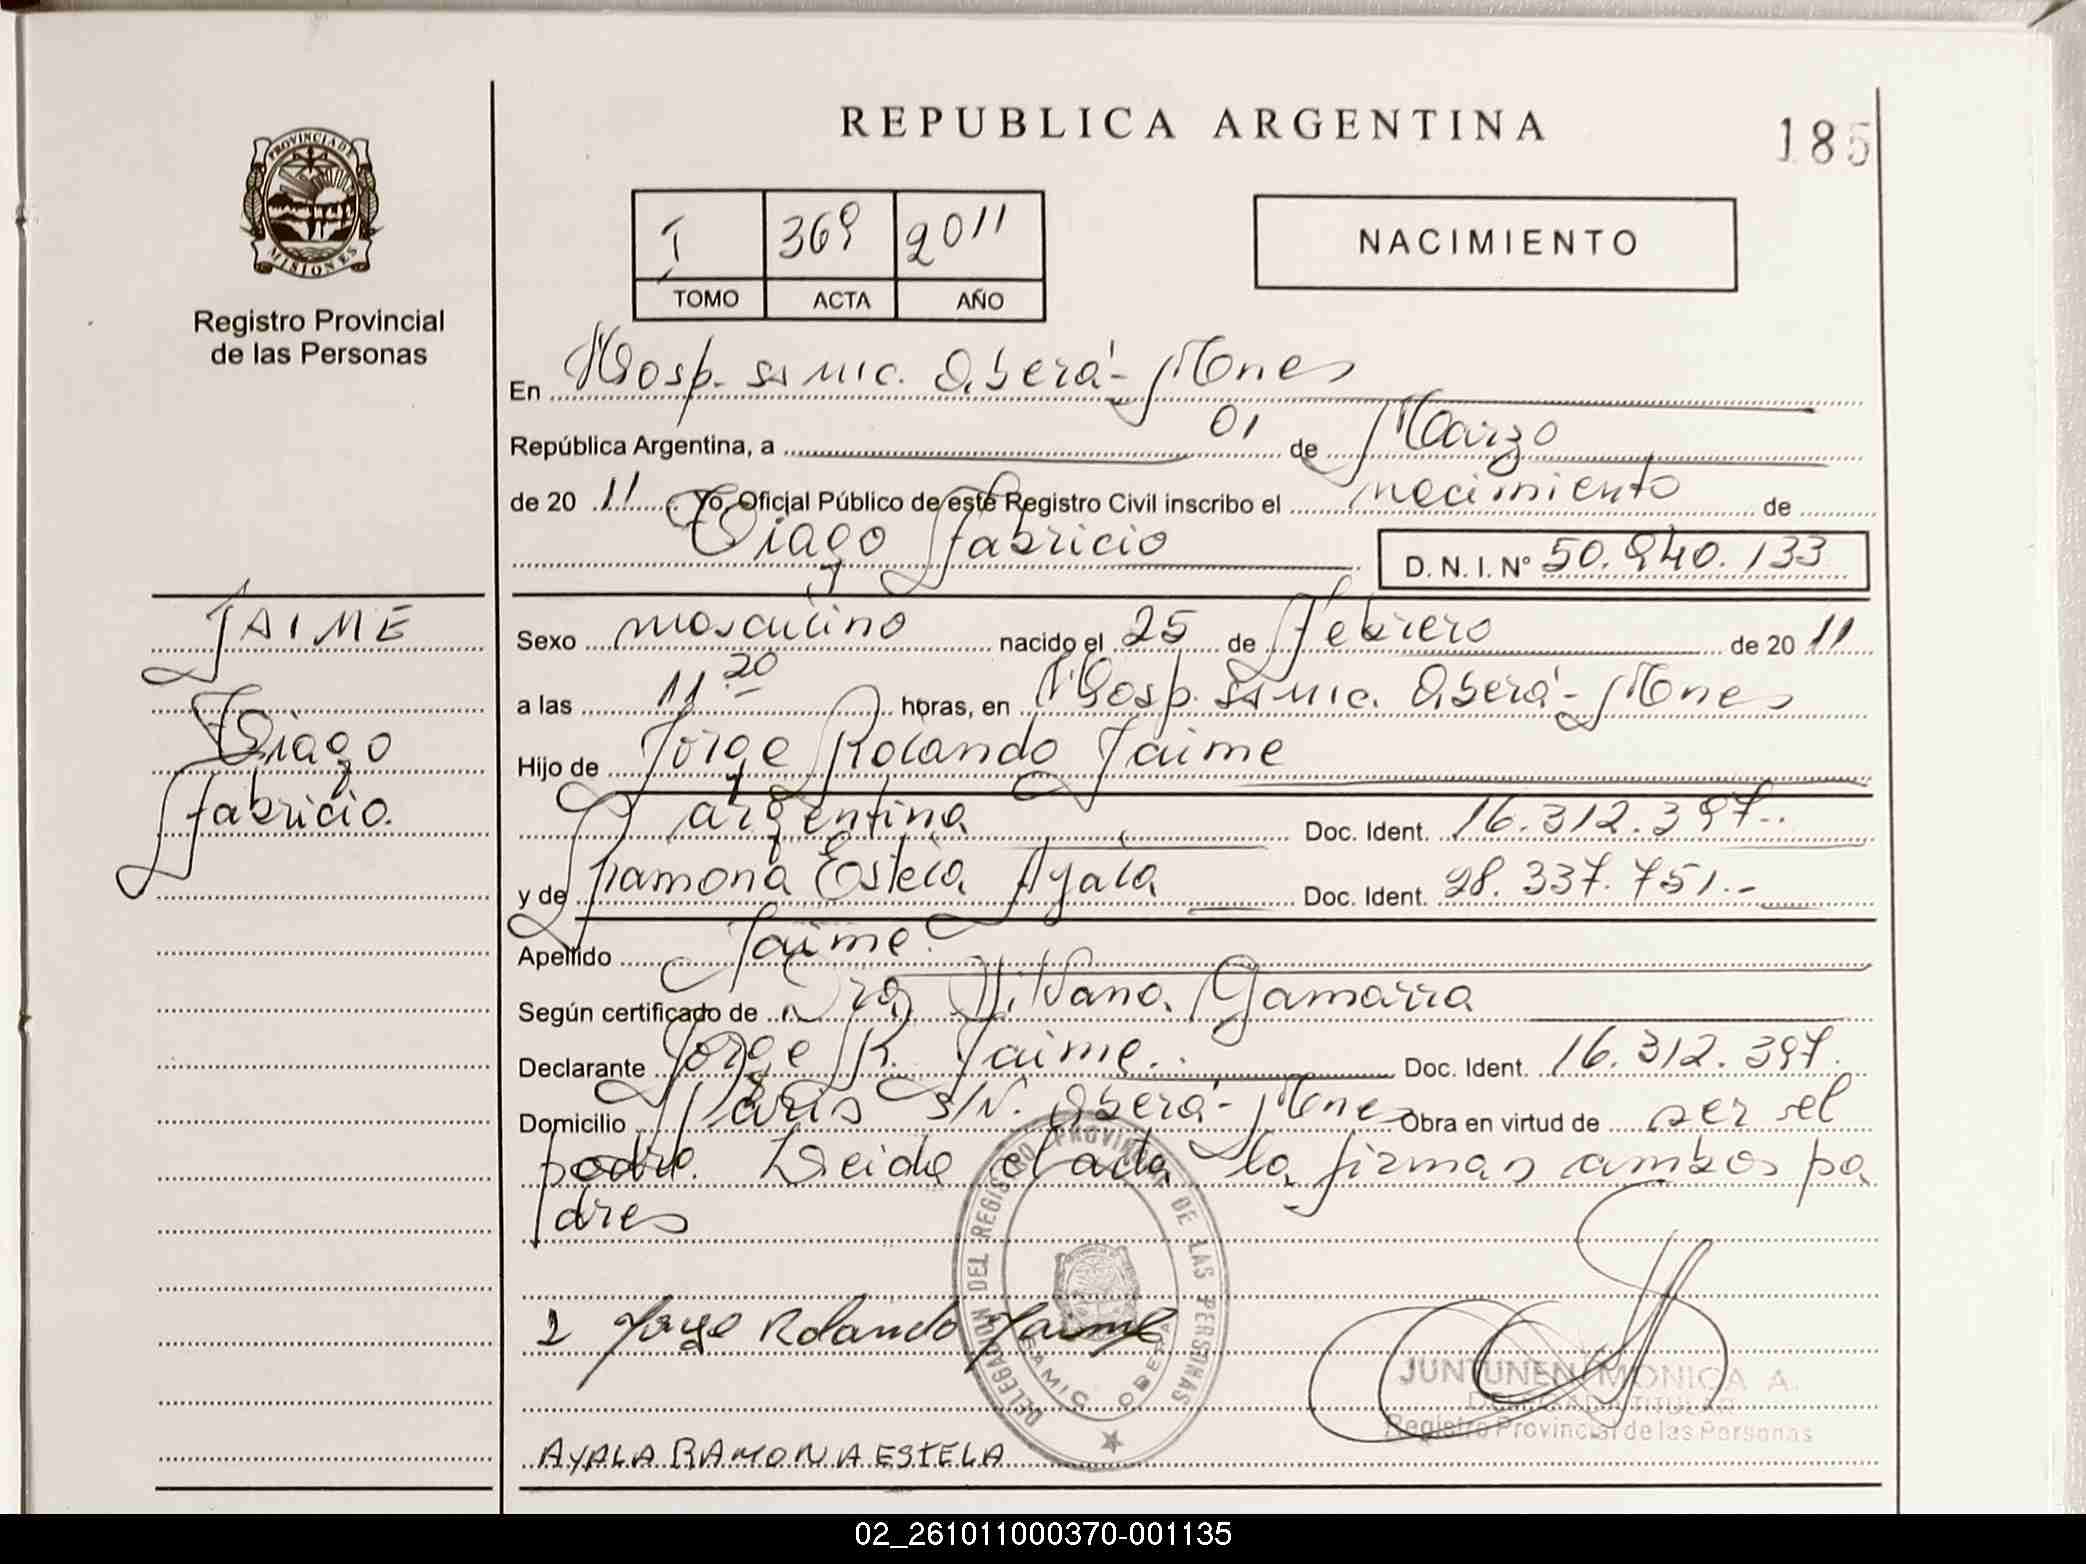 REPUBLICA ARGENTINA
185
PROVINCIA DE
MISIONES
Registro Provincial
de las Personas
I 369 2011
TOMO ACTA AÑO
NACIMIENTO
En Hosp. Samic. Oberá - Mnes
República Argentina, a 01 de Marzo
de 20 11. Yo, Oficial Público de este Registro Civil inscribo el nacimiento de
Tiago Fabricio
D. N. I. Nº 50.940.133
JAIME
Tiago
Fabricio.
Sexo masculino nacido el 25 de Febrero de 20 11
a las 11.20 horas, en Hosp. Samic. Oberá - Mnes
Hijo de Jorge Rolando Jaime
argentina Doc. Ident. 16.312.397.-
y de Ramona Estela Ayala Doc. Ident. 28.337.751.-
Apellido Jaime.
Según certificado de Dra Silvana Gamarra
Declarante Jorge R. Jaime. Doc. Ident. 16.312.397.
Domicilio Paris S/N. Oberá - Mnes Obra en virtud de ser el
padre. Leida el acta la firman ambos pa
dres
DELEGACION DEL REGISTRO PROVINCIAL DE LAS PERSONAS
SAMIC OBERA
Jorge Rolando Jaime
JUNTUNEN MONICA A.
DELEGADA TITULAR
Registro Provincial de las Personas
AYALA RAMONA ESTELA
02_261011000370-001135